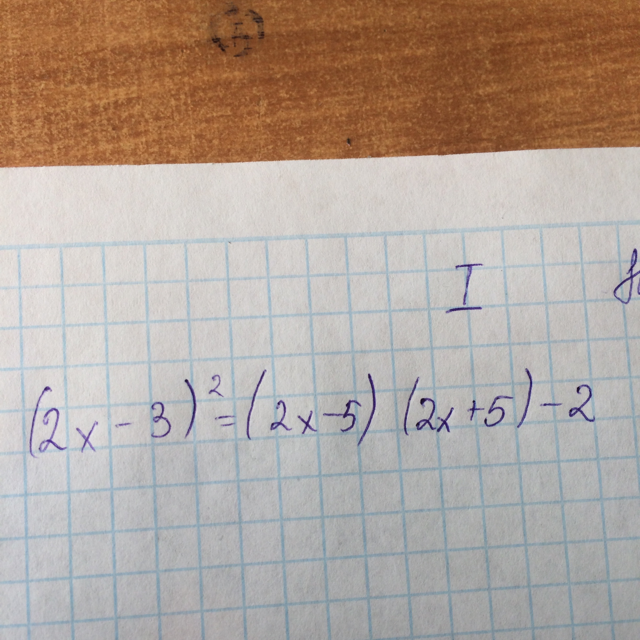 I
(2x-3)²=(2x-5)(2x+5)-2